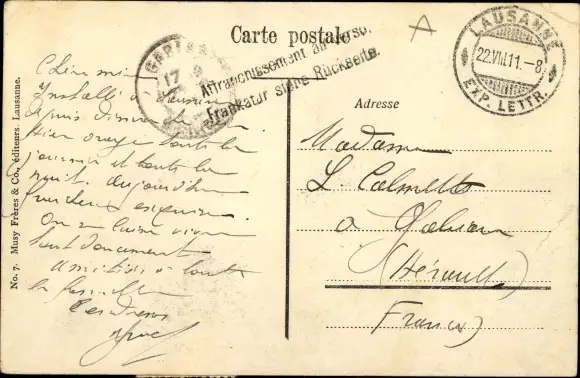 Carte postale
Affranchissement au verso.
Frankatur siehe Rückseite.
LAUSANNE
22.VIII.11.-8
EXP. LETTR.
GABIAN
17
Adresse
Madame
L. Calmette
à Gabian
(Hérault)
France
Installé à Lausanne
depuis
Hier orage toute la
journée et toute la
nuit. Aujourd'hui
On se laisse vivre
tout doucement
Amitiés à toute
la famille
No. 7. Musy Frères & Co., éditeurs. Lausanne.